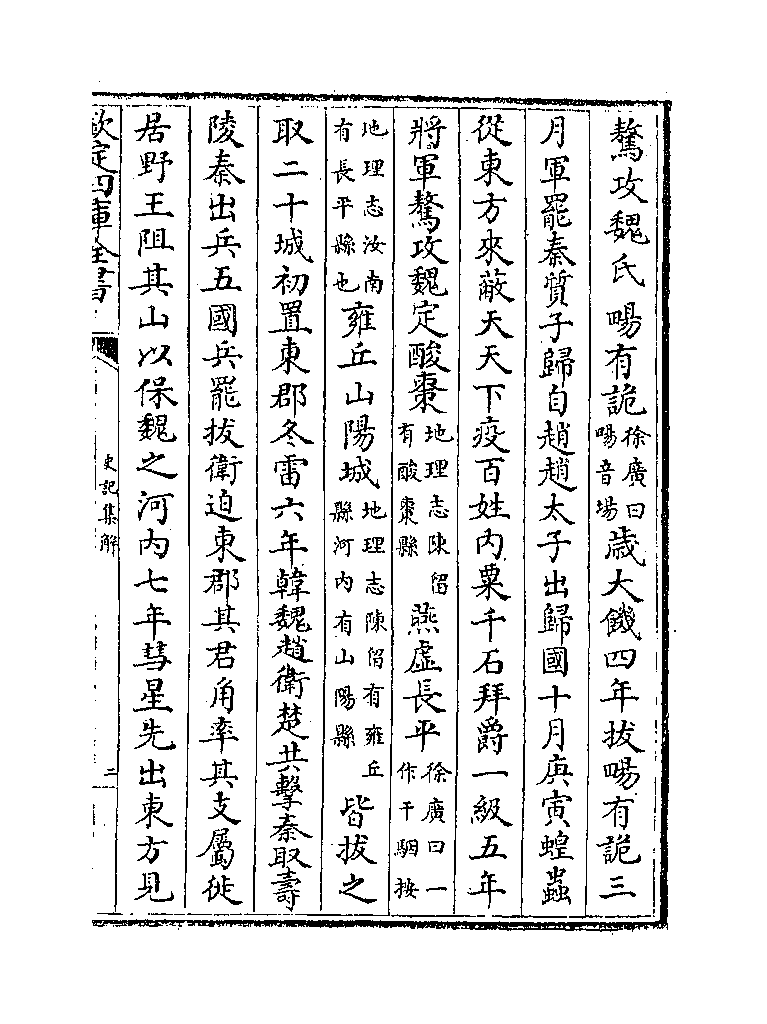 驁攻魏氏畼有詭徐廣曰畼音場歲大饑四年拔畼有詭三
月軍罷秦質子歸自趙趙太子出歸國十月庚寅蝗蟲
從東方來蔽天天下疫百姓內粟千石拜爵一級五年
將軍驁攻魏定酸棗地理志陳留有酸棗縣燕虛長平徐廣曰一作千駰按
地理志汝南有長平縣也雍丘山陽城地理志陳留有雍丘縣河內有山陽縣皆拔之
取二十城初置東郡冬雷六年韓魏趙衛楚共擊秦取壽
陵秦出兵五國兵罷拔衛迫東郡其君角率其支屬徙
居野王阻其山以保魏之河內七年彗星先出東方見
欽定四庫全書
史記集解